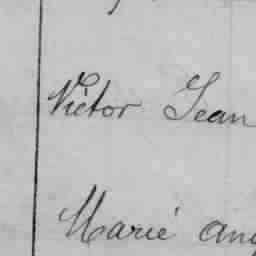 Victor Jean
Marie